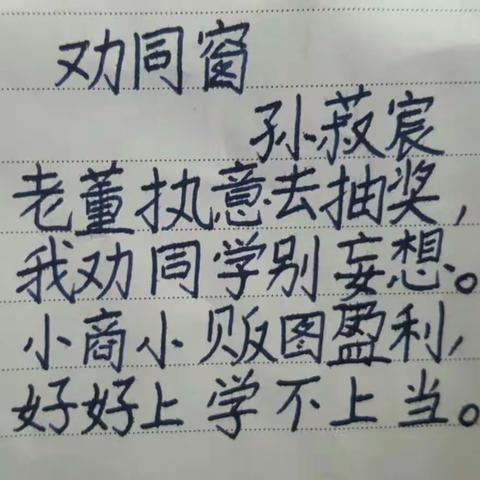 劝同窗
孙菽宸
老董执意去抽奖，
我劝同学别妄想。
小商小贩图盈利，
好好上学不上当。